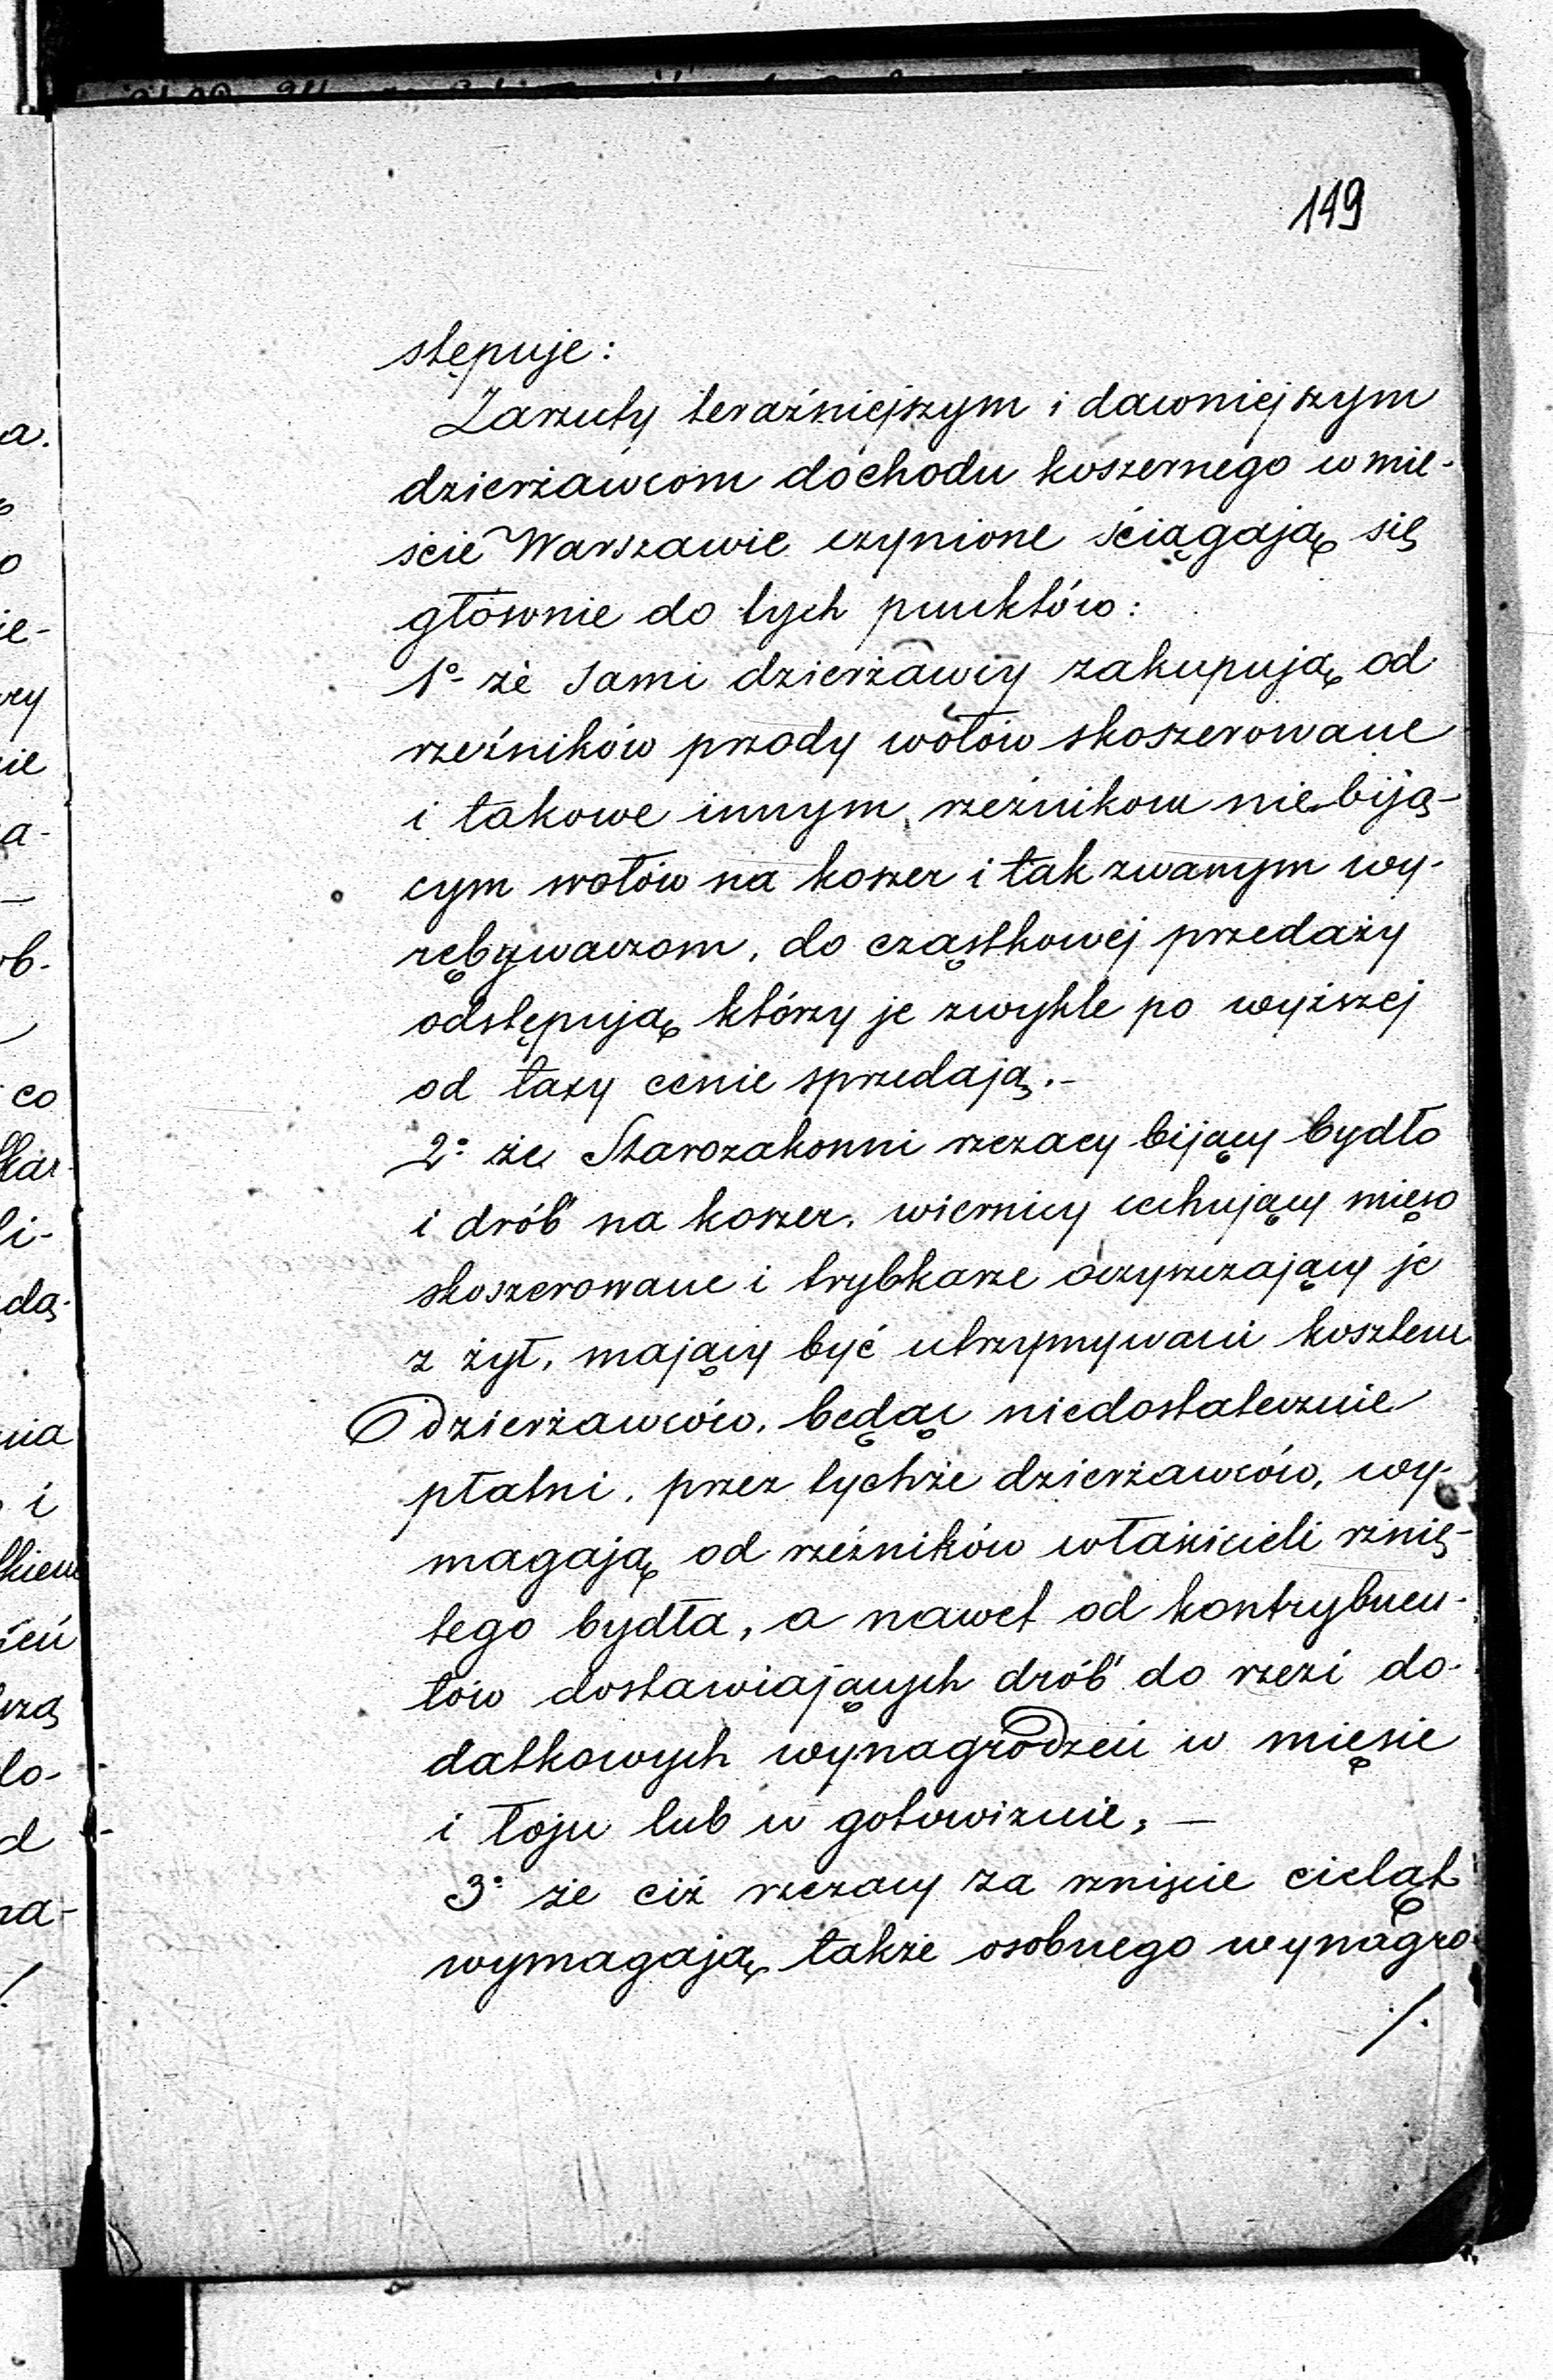 149
stępuje:
Zarzuty teraźniejszym i dawniejszym
dzierżawcom dochodu koszernego w mie-
ście Warszawie czynione ściągają się
głównie do tych punktów:
1o że sami dzierżawcy zakupują od
rzeźników przody wołów skoszerowane
i takowe innym rzeźnikom nie biją-
cym wołów na koszer i tak zwanym wy-
rębywaczom, do cząstkowej przedaży
odstępują, którzy je zwykle po wyższej
od taxy cenie sprzedają.-
2o że Starozakonni rzezacy bijący bydło
i drób' na koszer, wiernicy cechujący mięso
skoszerowane i trybkarze oczyszczający je
z żył, mający być utrzymywani kosztem
dzierżawców, będąc niedostatecznie
płatni, przez tychże dzierżawców, wy-
magają od rzeźników właścicieli rznię-
tego bydła, a nawet od kontrybuen-
tów dostawiających drób' do rzezi do-
datkowych wynagrodzeń w mięsie
i łoju lub w gotowiznie, -
3o że ciż rzezacy za rznięcie cieląt
wymagają, także osobnego wynagro
./.
a.
o
ie-
rzy
nie
a-
rb.
co
li-
dą-
nia
i
kiem
rzą
do-
d
na-